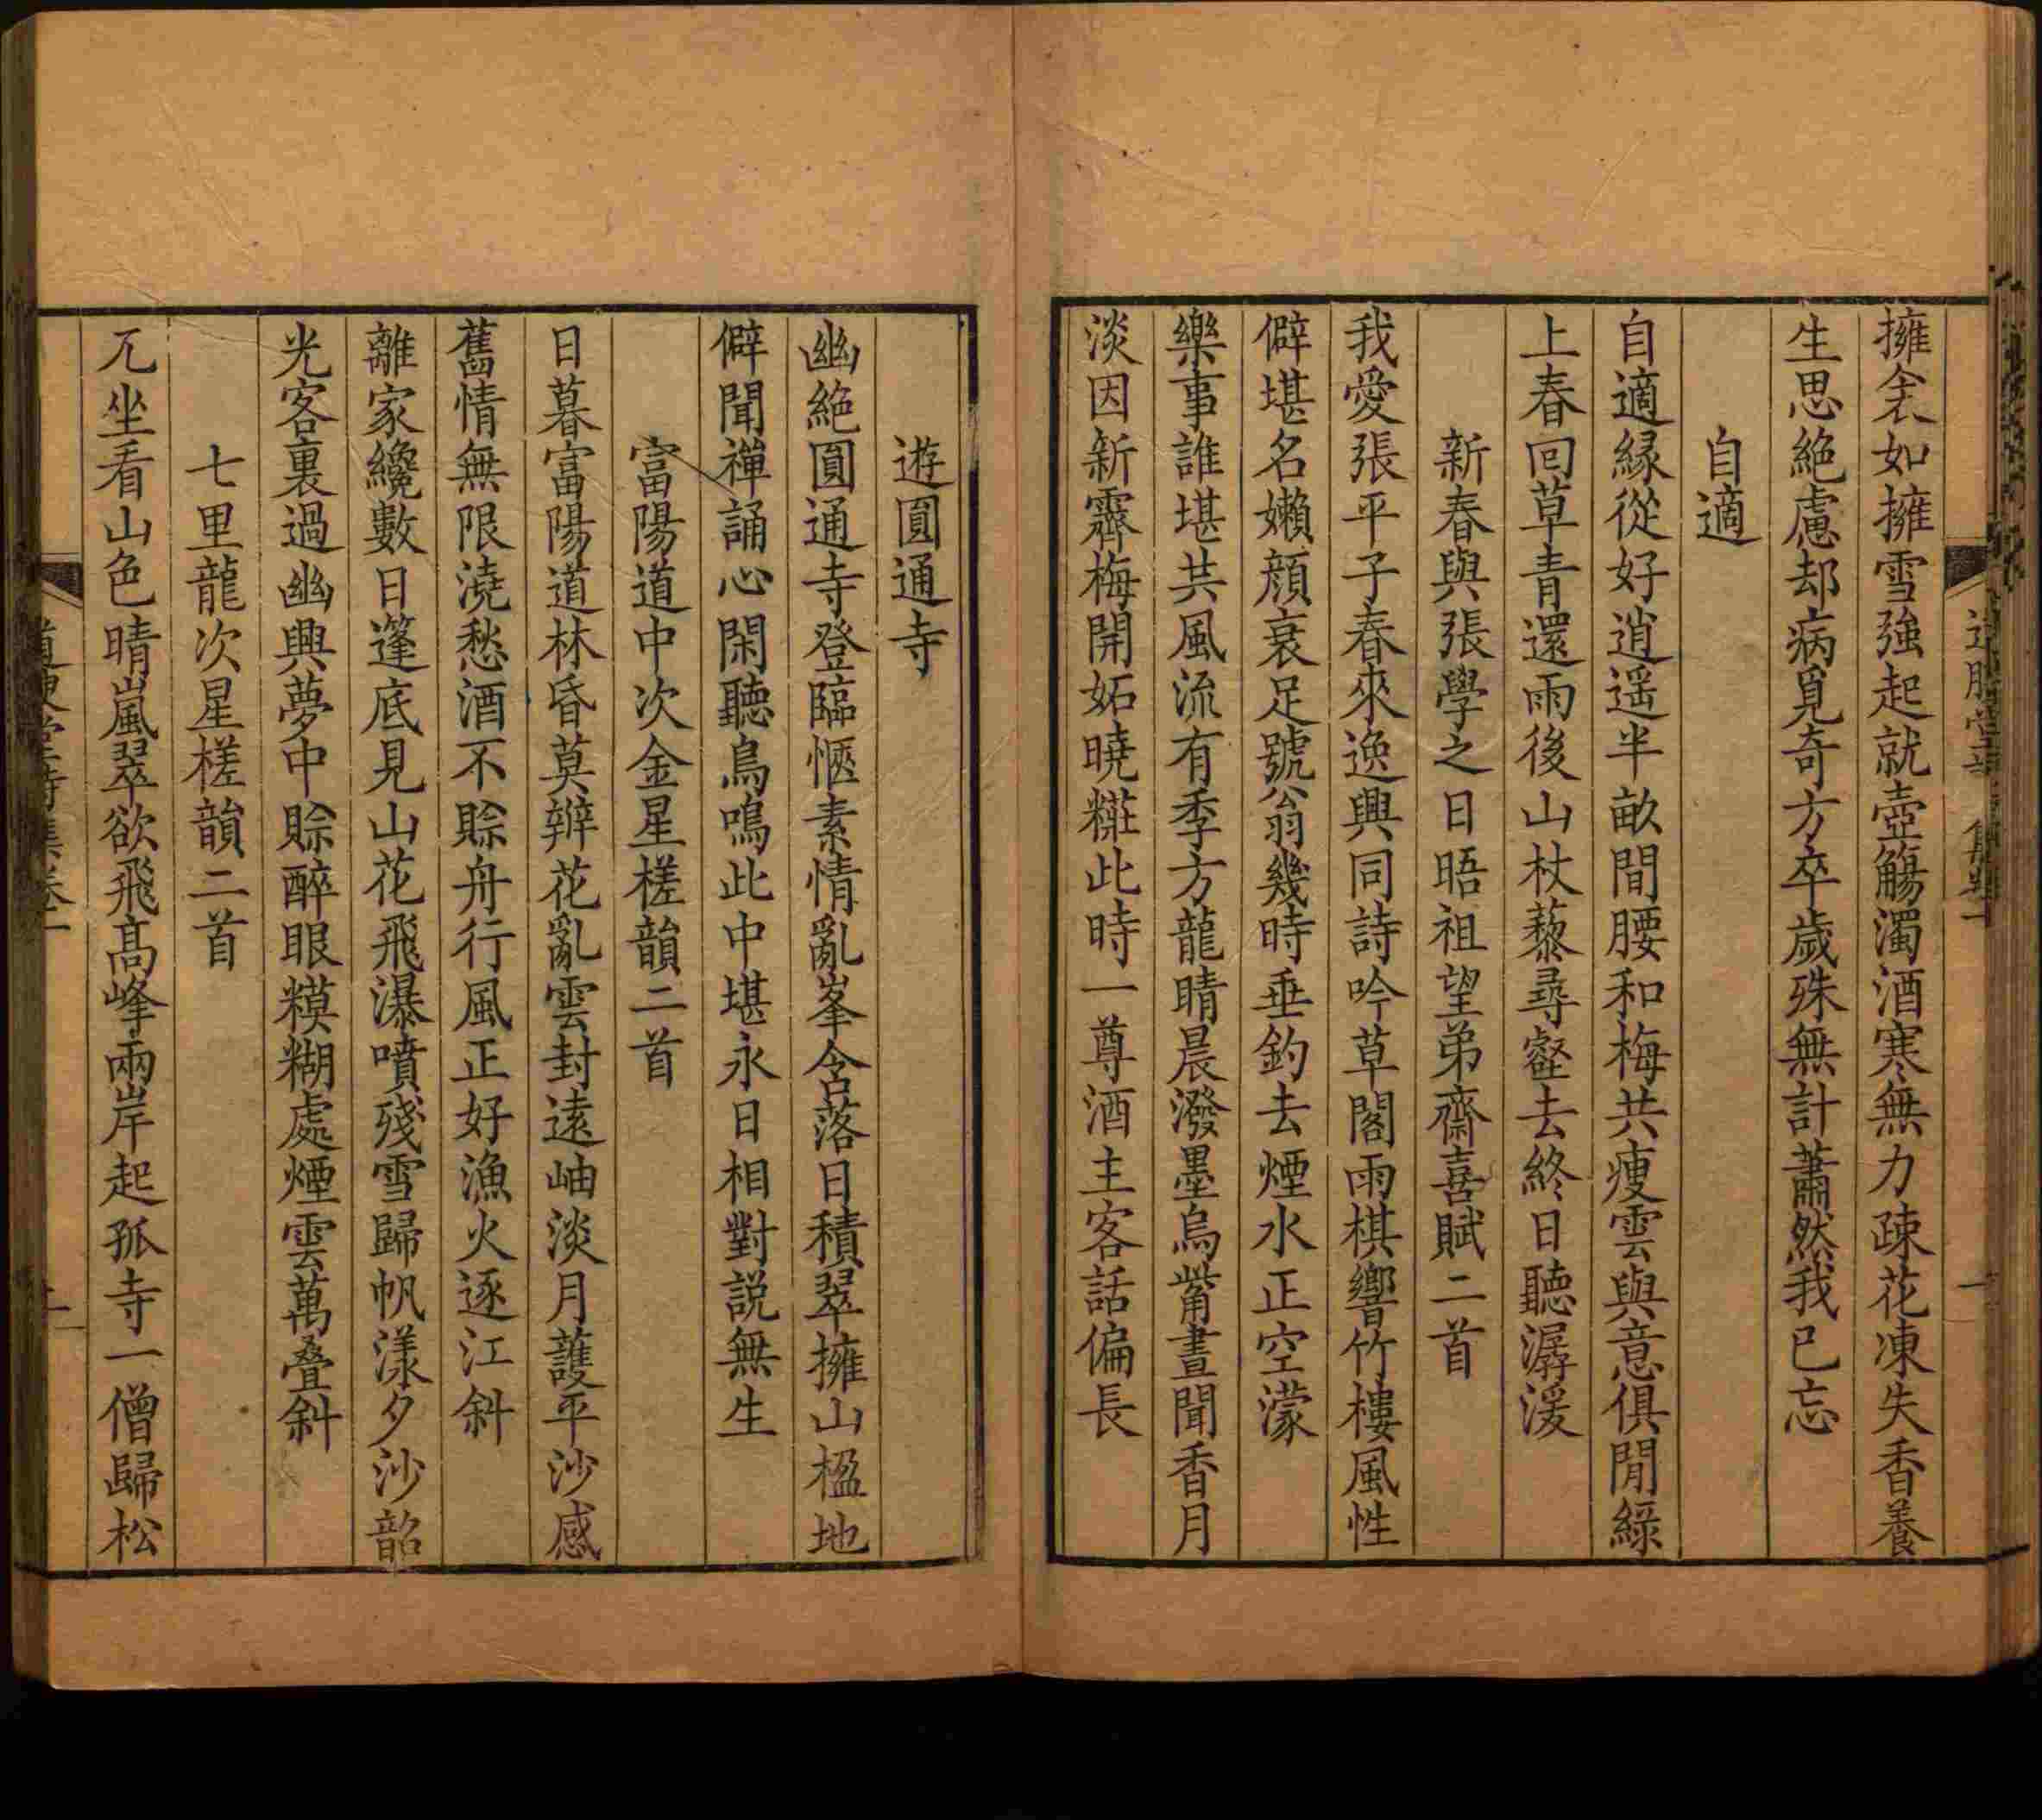 擁衾如擁雪強起就壺觴濁酒寒無力疎花凍失香養
生思絶慮却病覓奇方卒歲殊無計蕭然我已忘
自適
自適緣從好逍遥半畝間腰和梅共瘦雲與意俱閒綠
上春回草青還雨後山杖藜尋壑去終日聽潺湲
新春與張學之日晤祖望弟齋喜賦二首
我愛張平子春來逸興同詩吟草閣雨棋響竹樓風性
僻堪名嬾顔衰足號翁幾時垂釣去煙水正空濛
樂事誰堪共風流有季方龍晴晨潑墨烏觜晝聞香月
淡因新霽梅開妬曉糚此時一尊酒主客話偏長
遊圓通寺
幽絶圓通寺登臨愜素情亂峯含落日積翠擁山楹地
僻聞禪誦心閑聽鳥鳴此中堪永日相對説無生
富陽道中次金星槎韻二首
日暮富陽道林昏莫辧花亂雲封遠岫淡月護平沙感
舊情無限澆愁酒不賒舟行風正好漁火逐江斜
離家纔數日篷底見山花飛瀑噴殘雪歸帆漾夕沙韶
光客裏過幽興夢中賒醉眼糢糊處煙雲萬叠斜
七里龍次星槎韻二首
兀坐看山色晴嵐翠欲飛髙峰兩岸起孤寺一僧歸松